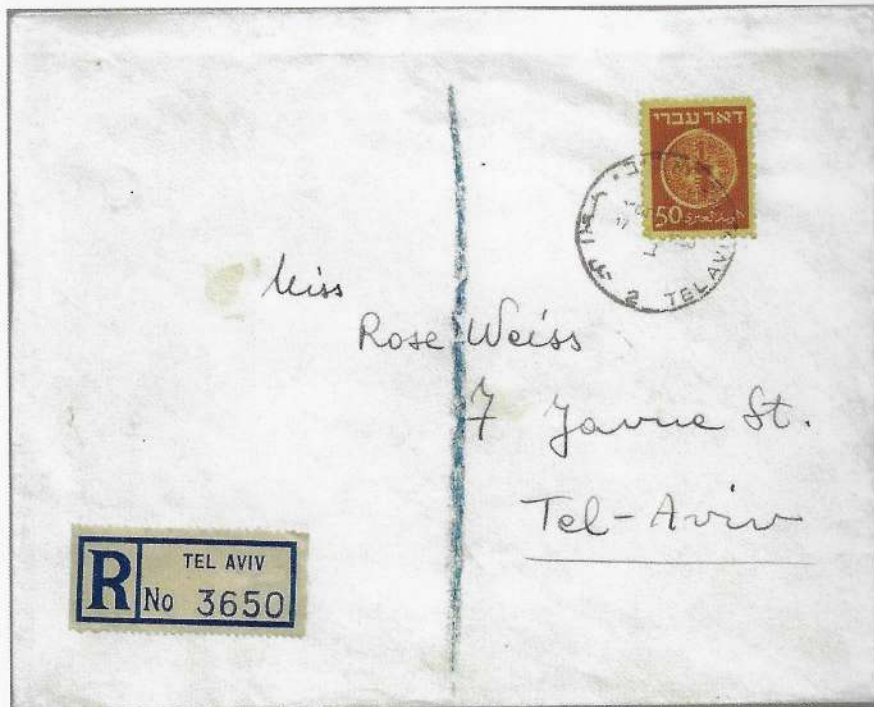 דאר עברי
50 بريد عبري
2 TEL AVIV
Miss
Rose Weiss
7 Javne St.
Tel-Aviv
R
TEL AVIV
No 3650